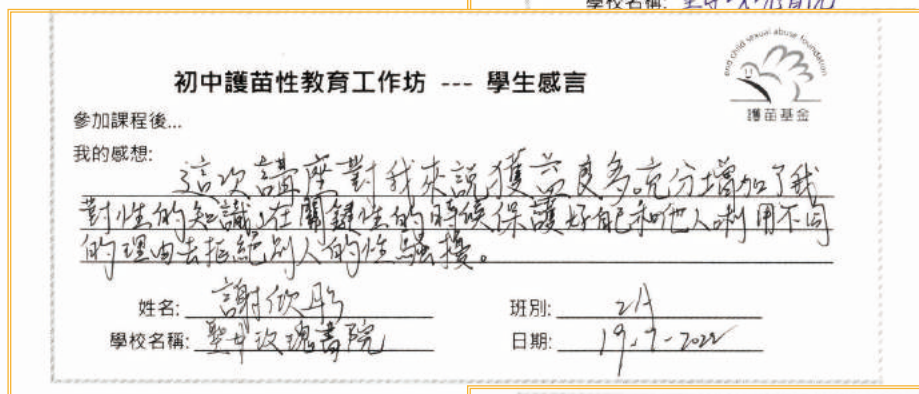 學校名稱:
end child sexual abuse foundation
初中護苗性教育工作坊 --- 學生感言
護苗基金
參加課程後...
我的感想:
這次講座對我來說獲益良多,充分增加了我
對性的知識,在關鍵性的時候保護好自己和他人,利用不同
的理由去拒絕別人的性騷擾。
姓名: 謝欣彤 班別: 2A
學校名稱: 聖母玫瑰書院 日期: 19-7-2022